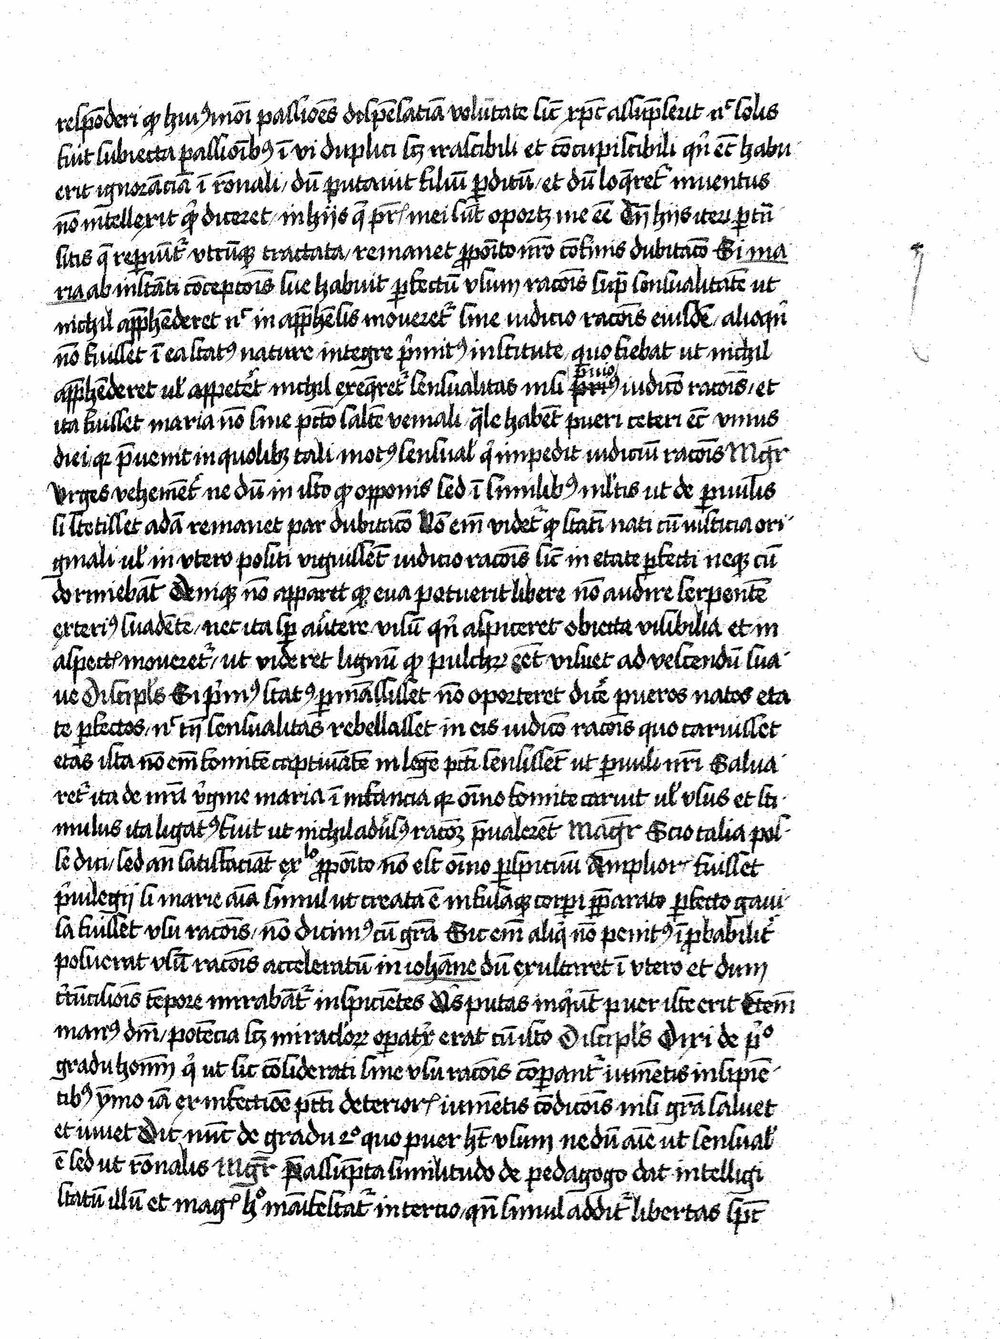 respōderi qp huiꝰmōi passiōes dispēsatiā volūtate sic̄ xpc̄ assūpserit nͨ solis
fuit subiecta passioībꝰ ī vi duplici scꝫ irascibili et cōcupiscibili qn̄ ec̄ habu
erit ignorāciā ī rōnali / dū putavit filiū pditū / et dū loq̄ret᷑ inventus
nō intellexit qd̓ diceret / in hijs q̄ pr̄is mei sūt oportꝫ me eē Cū hijs iteꝝ ptū
sitis q̄ repiūt᷑ vtrūqꝫ tractata / remanet ꝓpoīto nr̄o cōfinis dubitacō Si ma
ria ab instāti cōcepcōis sue habuit pfectū vsum racōis sup̄ sensualitatē ut
nichil app̄hēderet nͨ in app̄hēsis moveret᷑ sine iudicio racōis eiusdē / alioqn̄
nō fuisset ī ea statꝰ nature integre p̓mitꝰ institute / quo fiebat ut nichil
app̄hēderet ul̓ appetēt nichil exeq̄ret᷑ sensualitas nisi p̄mio iudicō racōis / et
ita fuisset maria nō sine pctō saltē veniali / q̄le habēt pueri ceteri ec̄ vnius
diei qꝫ p̄uenit in quolibꝫ tali motꝰ sensual̓ q̓ impedit iudiciū racōis Mgr̄
Vrges vehemēt᷑ ne dū in isto qp opponis sed ī similibꝰ ml̓tis ut de pvulis
si stetisset adā remanet par dubitacō Nō em̄ videt᷑ qp statī nati cū iusticia ori
ginali ul̓ in vtero positi viguissēt iudicio racōis sic̄ in etate pfecti neqꝫ cū
dormiebāt Deniqꝫ nō apparet qp eva potuerit libere nō audire serpentē
exteriꝰ suadētē / nec ita sp̄ av̓tere visū qn̄ aspiceret obiecta visibilia et in
aspectꝫ moveret᷑ / ut videret lignū qp pulchꝝ eēt visuet ad vescendū sua
ve Discipl̓s Si p̓mꝰ statꝰ pmāsisset nō oporteret dic̓e pueros natos eta
te pfectos / nͨ tn̄ sensualitas rebellasset in eis iudicō racōis quo caruisset
etas ista nō em̄ fomitē captivātē in legē pcti sensissēt ut pvuli nr̄i Salva
ret᷑ ita de nr̄a v̓gine maria ī infancia qp oīno fomite caruit ul̓ vsus et sti
mulus ita ligatꝰ fuit ut nichil adv̓sꝰ racōꝫ p̄valerēt Magr̄ Scio talia pos
se dici / sed an̄ satisfaciāt ex lo ꝓpoīto nō est oīno pspicuū Amplior̓ fuisset
p̓vilegij si marie aīa simul ut creata ē infusaqꝫ corpi p̄parato pfecto gavi
sa fuisset vsu racōis / nō dicimꝰ cū grā Sic em̄ aliq̓ nō penitꝰ īp̄babilit᷑
posuerāt vsū racōis acceleratū in iohāne dū exultaret ī vtero et dum
c̓cūcisiōis tēpore mirabāt᷑ inspiciētes Q̓s putas inq̓ūt puer iste erit Etem̄
manꝰ dn̄i / potēcia scꝫ miracl̓oꝝ opat᷑r erat cū isto Discipl̓s Dixi de p̓ͦ
gradu hoīm q̓ ut sic cōsiderati sine vsu racōis cōpant᷑ iumētis insipiē
tibꝰ ymo iā ex infectiōe pcti deterioris iumētis cōdicōis nisi grā salvet
et iuvet Dic̄ nūc de gradu 2ͦ quo puer hꝫ vsum nedū aīe ut sensual̓
ē sed ut rōnalis Mgr̄ P̄assūpta similitudo de pedagogo dat intelligi
statū illū et magꝭ hͦ māifestat᷑ in tercio / qn̄ simul addit᷑ libertas spc̄